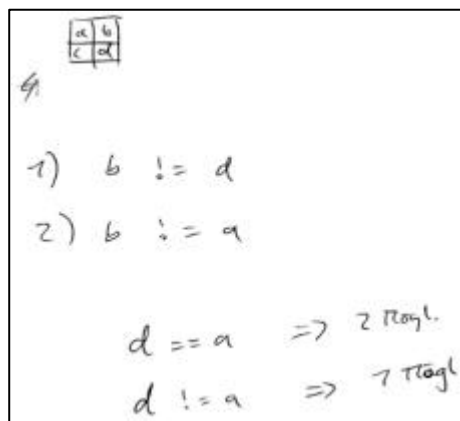 a b
c d
4.
1) b != d
2) b != a
d == a => 2 Mögl.
d != a => 1 Mögl.